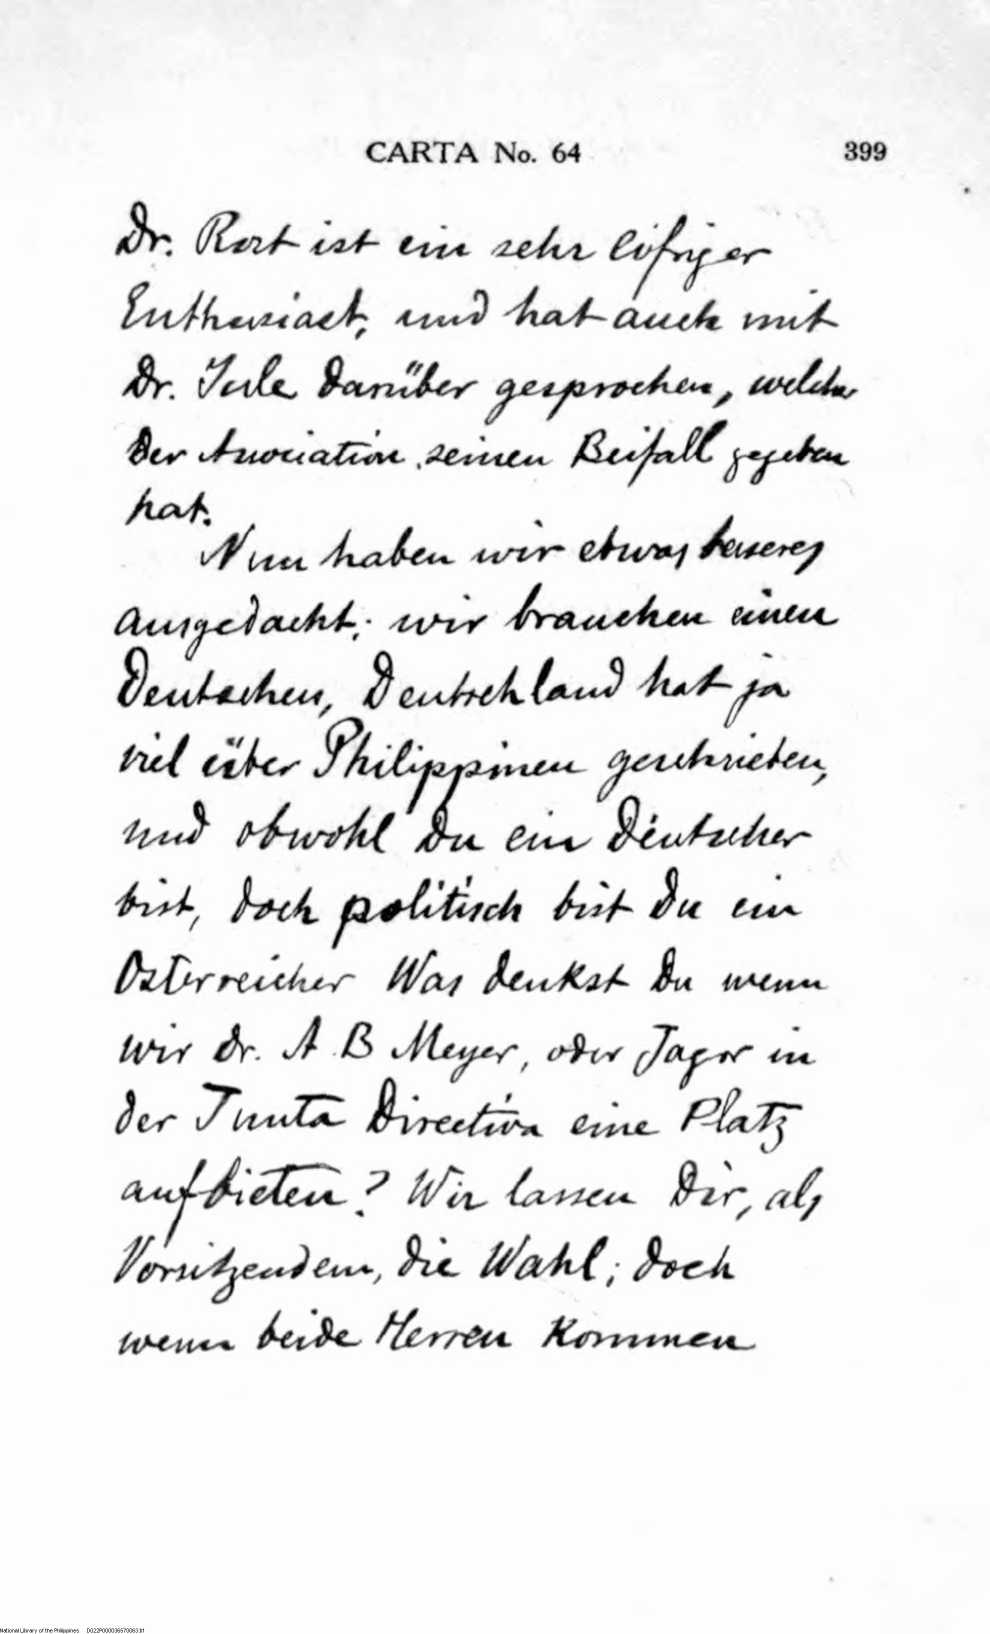 CARTA No. 64 399
Dr. Rost ist ein sehr eifriger
Enthusiast, und hat auch mit
Dr. Jule darüber gesprochen, welcher
der Association seinen Beifall gegeben
hat.
Nun haben wir etwas besseres
ausgedacht; wir brauchen einen
Deutschen, Deutschland hat ja
viel über Philippinen geschrieben,
und obwohl Du ein Deutscher
bist, doch politisch bist Du ein
Osterreicher Was denkst Du wenn
wir Dr. A. B Meyer, oder Jagor in
der Junta Directiva eine Platz
aufbieten? Wir lassen Dir, als
Vorsitzendem, die Wahl; doch
wenn beide Herren kommen
National Library of the Philippines